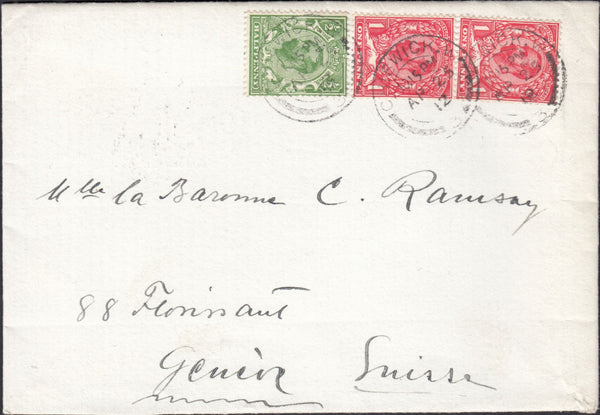 HALFPENNY
ONE
1
ONE
1
WICK
12
Mlle la Baronne C. Ramsay
88 Florissant
Genève Suisse